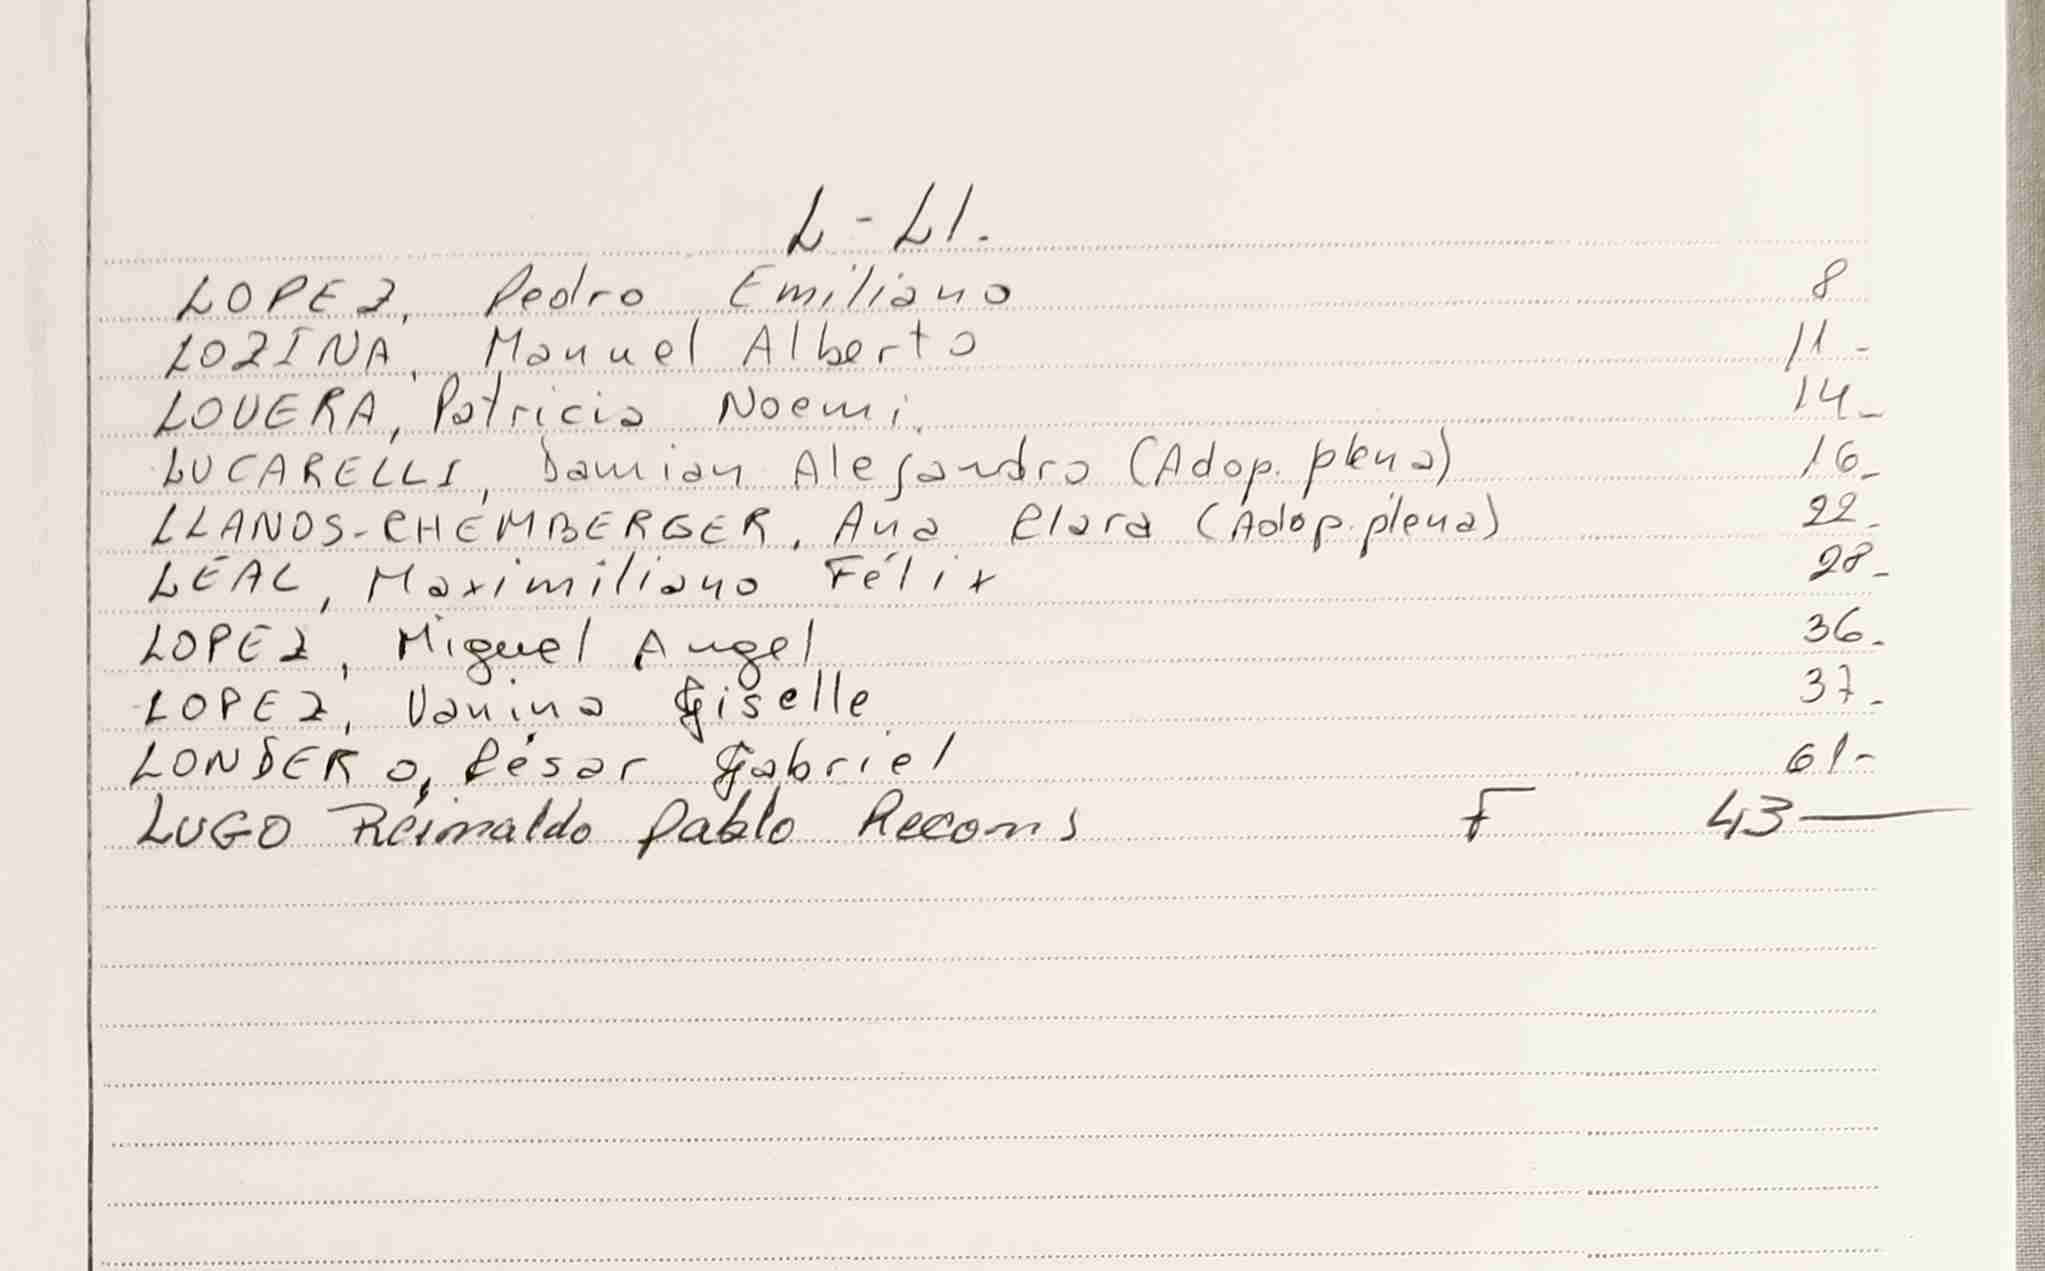 L - Ll.
LOPEZ, Pedro Emiliano 8
LOZINA, Manuel Alberto 11-
LOVERA, Patricia Noemi. 14-
LUCARELLI, Damian Alejandro (Adop. plena) 16-
LLANOS-CHEMBERGER, Ana Clara (Adop. plena) 22-
LEAL, Maximiliano Félix 28-
LOPEZ, Miguel Angel 36-
LOPEZ, Vanina Giselle 37-
LONDERO, César Gabriel 61-
LUGO Reinaldo Pablo Recons F 43—